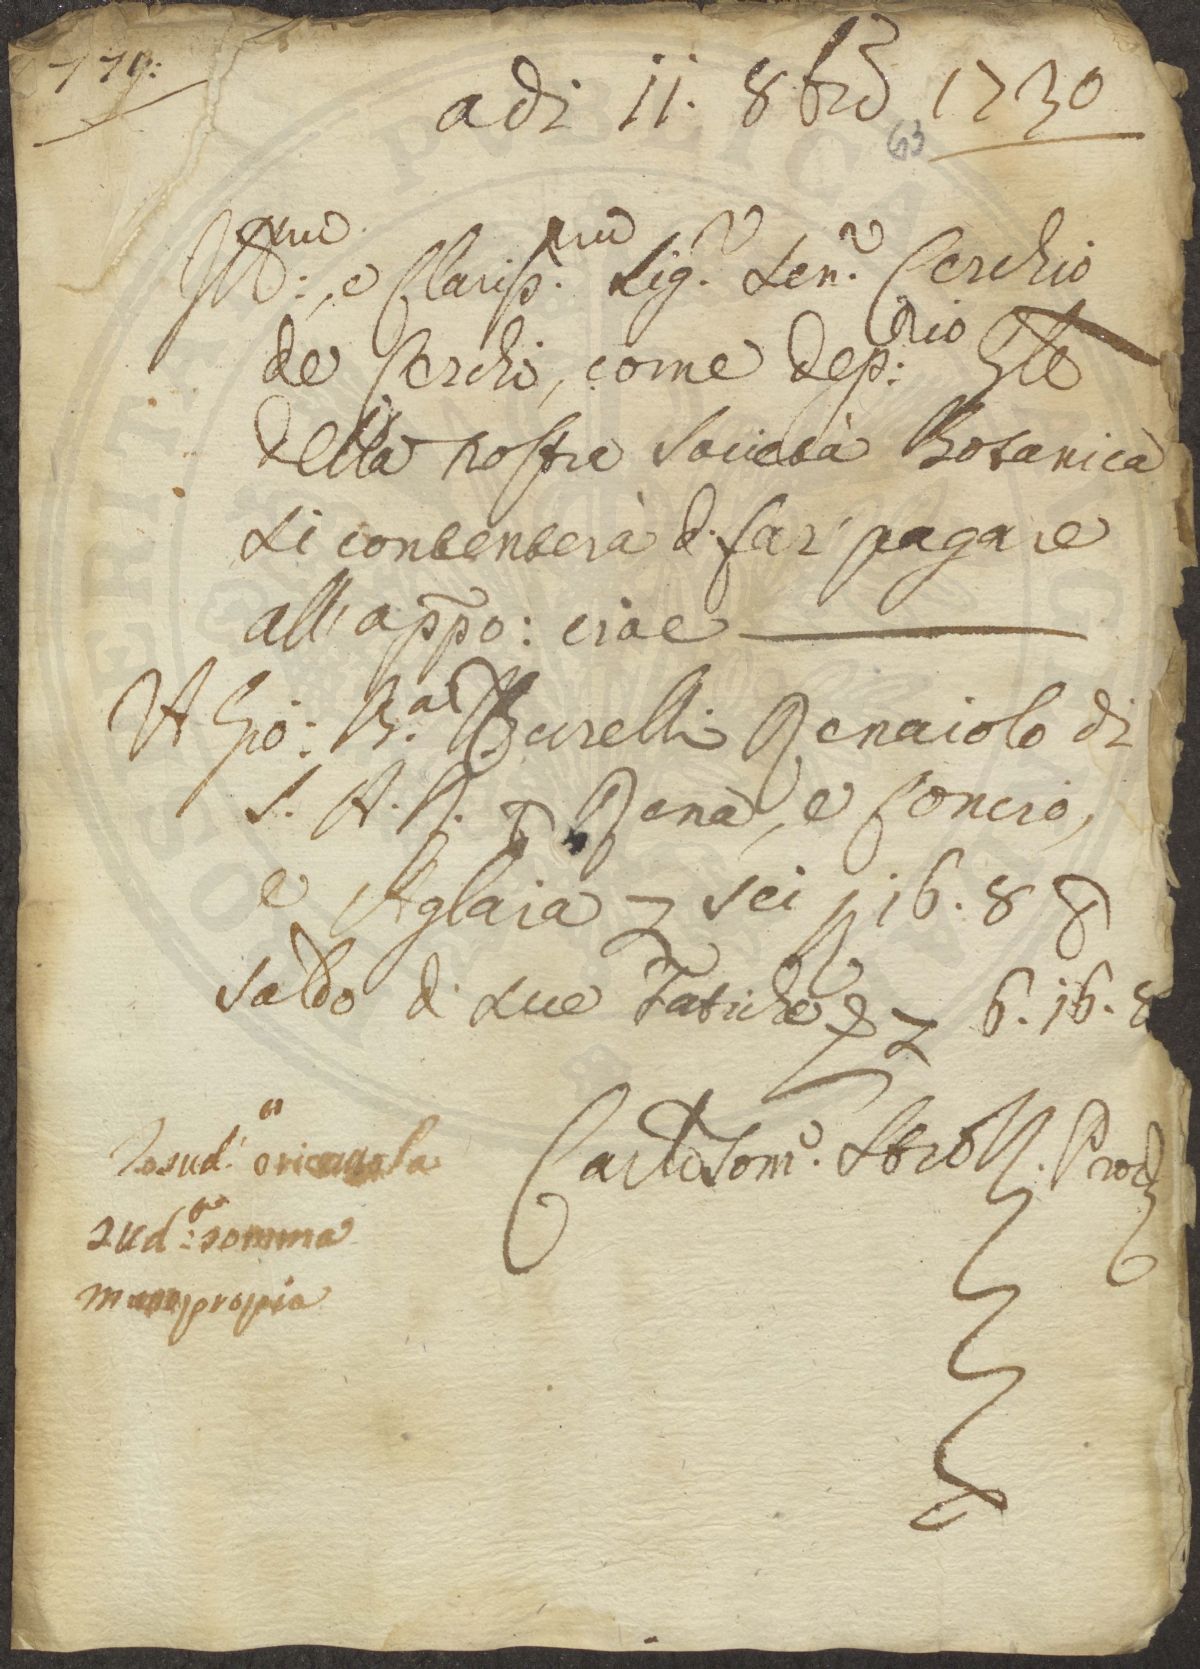 119:
adi 11. 8bre 1730
63
Ill.mo: e Clariss.mo Sig.r Sen.r Cerchio
de Cerchi, come Dep.rio
della nostra Società Botanica
si contenterà di far pagare
all'appo: cioe
A Gio: B.a Burelli Renaiolo di
S. A. R. p Rena, e Concio,
e Aglaia sei 16. 8 p
saldo di sue Fatiche 6. 16. 8
Carlo Tom.o Strozzi. Prov
Io sud.o
sud.a somma
mano propia
PVBLICA